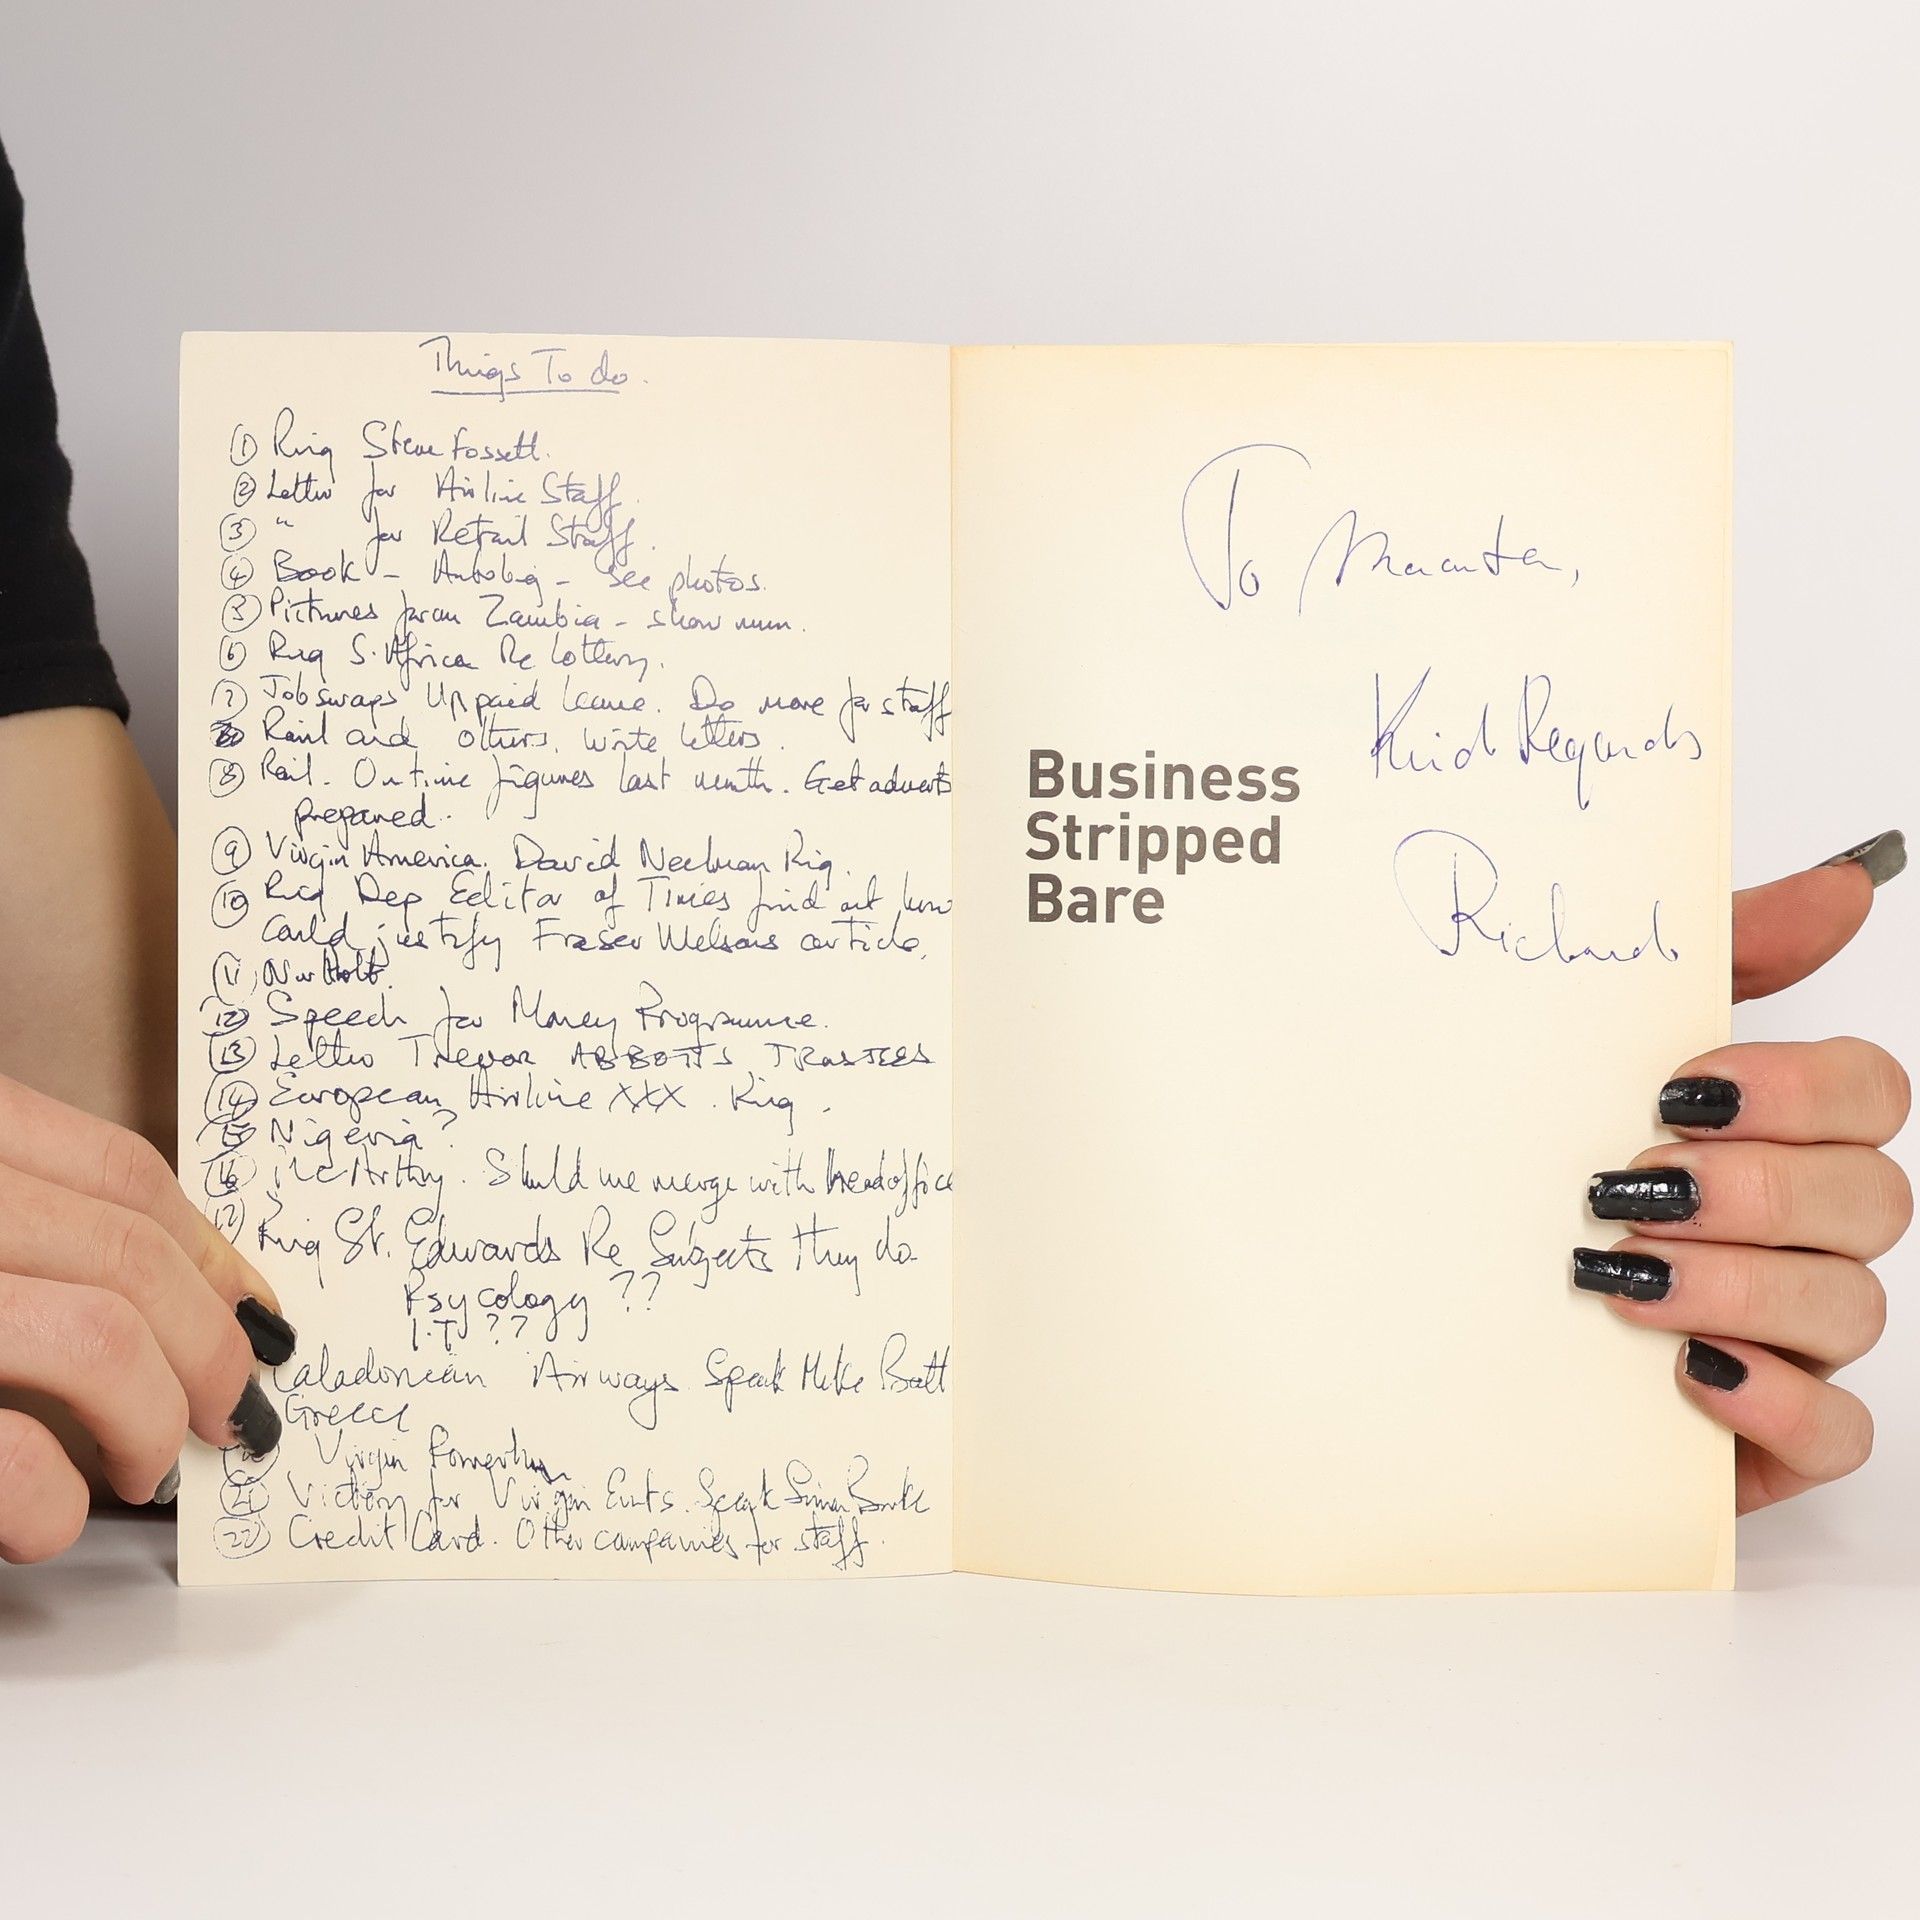 Things To do.
① Ring Steve Fossett.
② Letter for Airline Staff.
③ " for Retail Staff.
④ Book - Autobiog - see photos.
⑤ Pictures from Zambia - show mum.
⑥ Ring S. Africa Re Lottery.
⑦ Job swaps Unpaid leave. Do more for staff
Rail and others. Write letters.
⑧ Rail. On time figures last month. Get adverts
prepared.
⑨ Virgin America. David Neeleman Ring.
⑩ Ring Dep Editor of Times find out how
could justify Fraser Nelsons article.
⑪
⑫ Speech for Money Programme.
⑬ Letter Trevor ABBOTTS TRUSTEES
⑭ European Airline XXX. Ring.
⑮ Nigeria?
⑯ McArthy. Should we merge with head office
?
⑰ Ring St. Edwards Re Subjects they do
Psycology ??
I.T ??
Caladonian Airways Speak Mike Batt
Greece
Virgin
㉑ Victory for Virgin Events. Speak Simon Burke
㉒ Credit Card. Other companies for staff.
To
Kind Regards
Richard
Business
Stripped
Bare